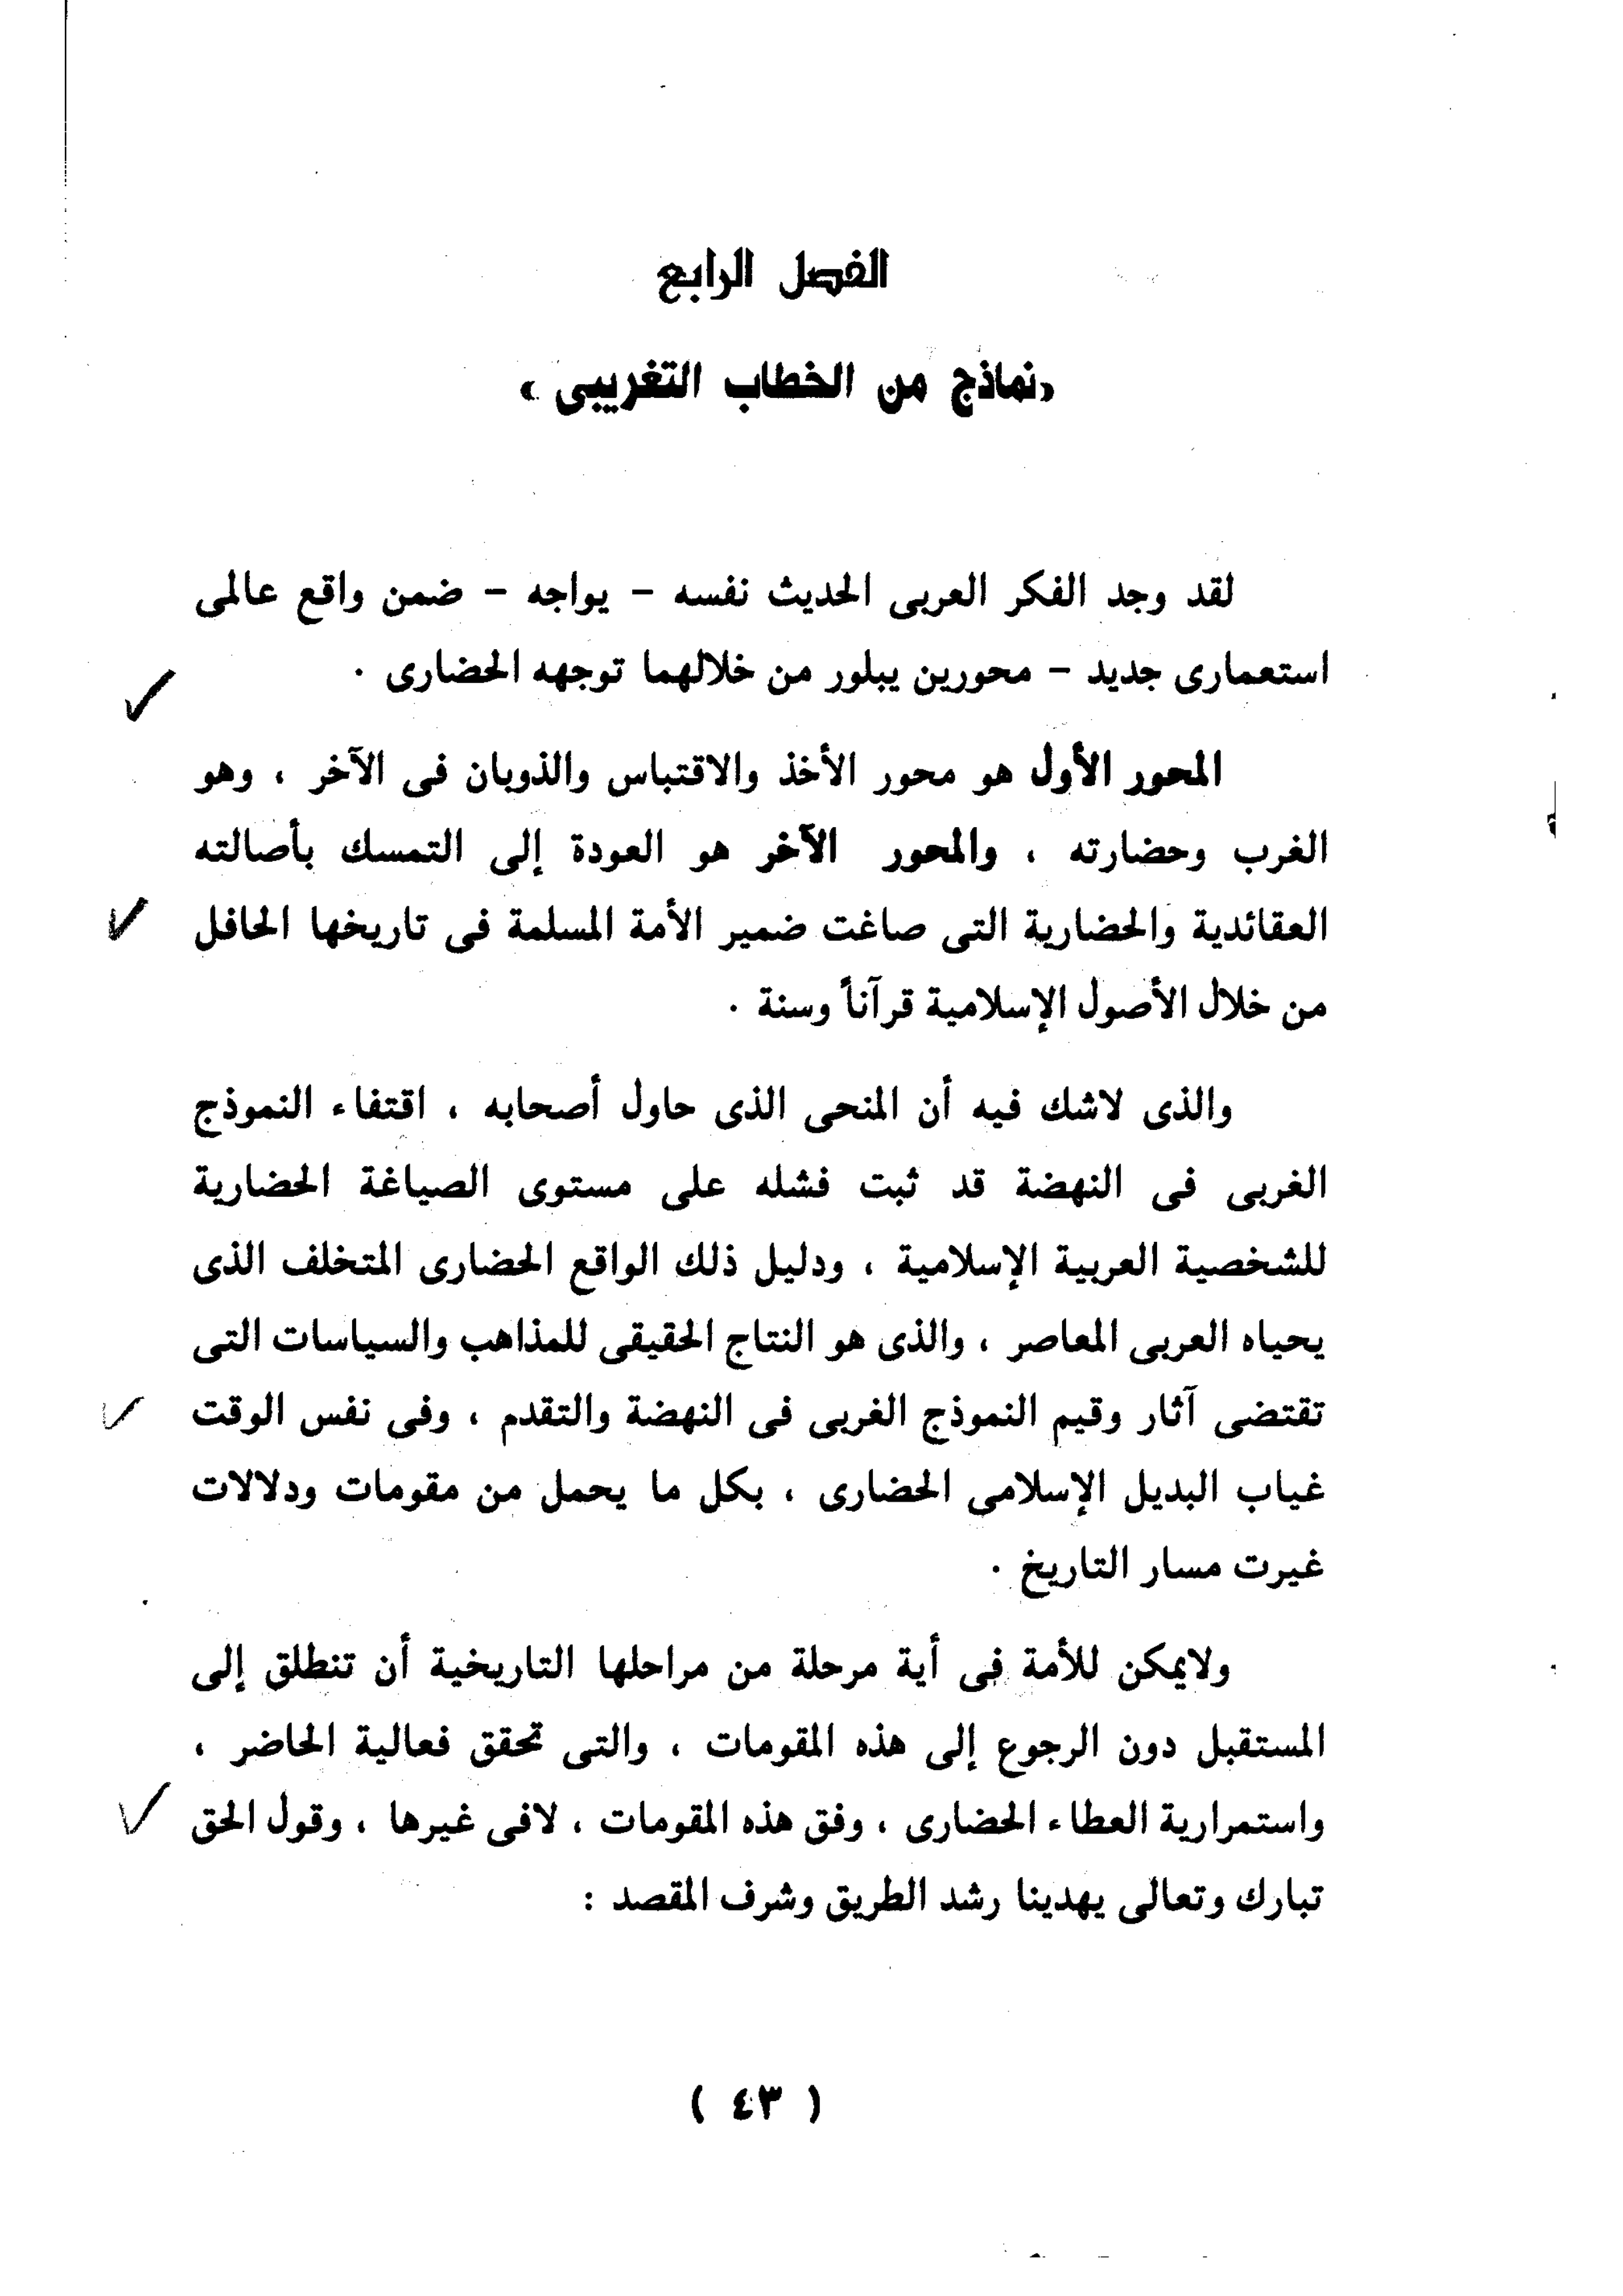 الفصل الرابع
«نماذج من الخطاب التغريبى»
لقد وجد الفكر العربى الحديث نفسه - يواجه - ضمن واقع عالمى
استعمارى جديد - محورين يبلور من خلالهما توجهه الحضارى .
المحور الأول هو محور الأخذ والاقتباس والذوبان فى الآخر ، وهو
الغرب وحضارته ، والمحور الآخر هو العودة إلى التمسك بأصالته
العقائدية والحضارية التى صاغت ضمير الأمة المسلمة فى تاريخها الحافل
من خلال الأصول الإسلامية قرآناً وسنة .
والذى لاشك فيه أن المنحى الذى حاول أصحابه ، اقتفاء النموذج
الغربى فى النهضة قد ثبت فشله على مستوى الصياغة الحضارية
للشخصية العربية الإسلامية ، ودليل ذلك الواقع الحضارى المتخلف الذى
يحياه العربى المعاصر ، والذى هو النتاج الحقيقى للمذاهب والسياسات التى
تقتضى آثار وقيم النموذج الغربى فى النهضة والتقدم ، وفى نفس الوقت
غياب البديل الإسلامى الحضارى ، بكل ما يحمل من مقومات ودلالات
غيرت مسار التاريخ .
ولايمكن للأمة فى أية مرحلة من مراحلها التاريخية أن تنطلق إلى
المستقبل دون الرجوع إلى هذه المقومات ، والتى تحقق فعالية الحاضر ،
واستمرارية العطاء الحضارى ، وفق هذه المقومات ، لافى غيرها ، وقول الحق
تبارك وتعالى يهدينا رشد الطريق وشرف المقصد :
( ٤٣ )